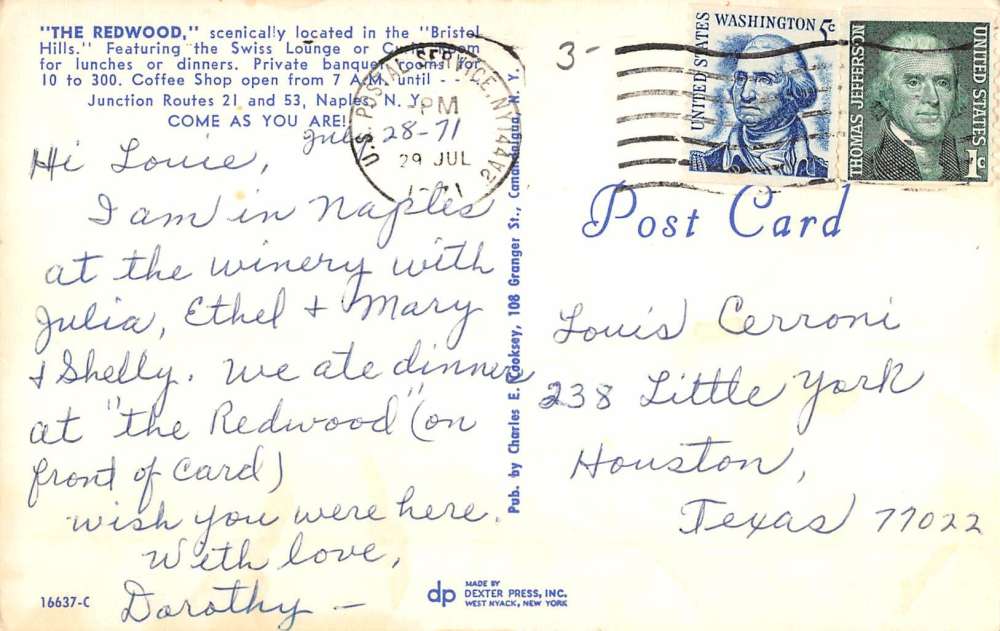 "THE REDWOOD," scenically located in the "Bristol
Hills." Featuring the Swiss Lounge or Room
for lunches or dinners. Private banquet rooms for
10 to 300. Coffee Shop open from 7 A.M. until - -
Junction Routes 21 and 53, Naples, N. Y.
COME AS YOU ARE!
28-71
Hi Louie,
I am in Naples
at the winery with
Julia, Ethel + Mary
+ Shelly. We ate dinner
at "the Redwood" (on
front of card)
wish you were here.
With love,
Dorothy —
16637-C
U.S. POSTAL SERVICE, NY
PM
29 JUL
Pub. by Charles E. Cooksey, 108 Granger St., Canandaigua, N. Y.
dp
MADE BY
DEXTER PRESS, INC.
WEST NYACK, NEW YORK
3-
UNITED STATES
WASHINGTON 5c
THOMAS JEFFERSON
UNITED STATES
1c
Post Card
Louis Cerroni
238 Little York
Houston,
Texas 77022